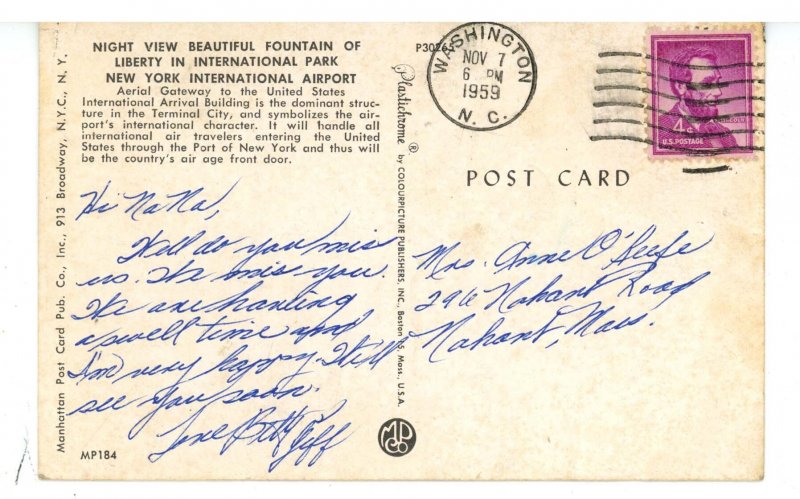 NIGHT VIEW BEAUTIFUL FOUNTAIN OF
LIBERTY IN INTERNATIONAL PARK
NEW YORK INTERNATIONAL AIRPORT
Aerial Gateway to the United States
International Arrival Building is the dominant struc-
ture in the Terminal City, and symbolizes the air-
port's international character. It will handle all
international air travelers entering the United
States through the Port of New York and thus will
be the country's air age front door.
Hi NaNa,
Well do you miss
us. We miss you.
We are having
a swell time and
I'm very happy. Will
see you soon.
Love Betty
Jeff
MP184
Manhattan Post Card Pub. Co., Inc., 913 Broadway, N.Y.C., N. Y.
Plastichrome ® by COLOURPICTURE PUBLISHERS, INC., Boston 15, Mass., U.S.A.
MP
CO
WASHINGTON
NOV 7
6 PM
1959
N. C.
4¢
U.S. POSTAGE
POST CARD
Mrs. Anne O'Keefe
296 Nahant Road
Nahant, Mass.